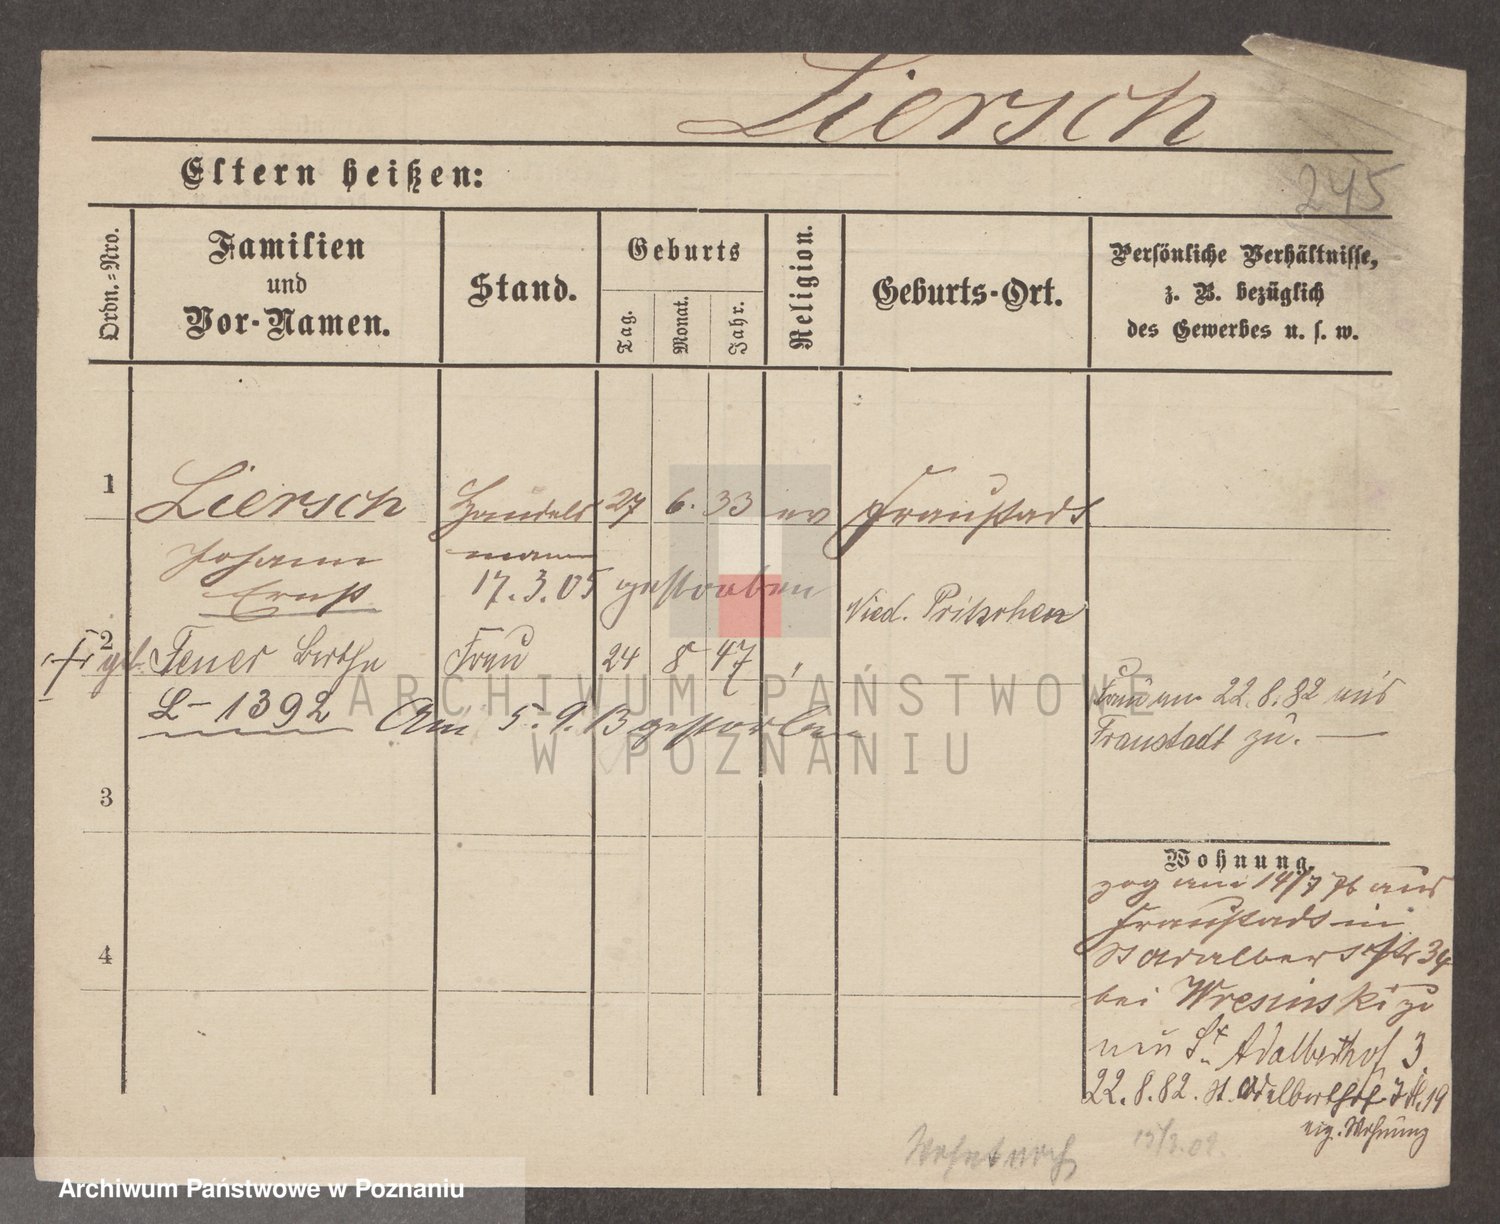 Liersch
245
Eltern heißen:
Ordn.-Nro.
Familien
und
Vor-Namen.
Stand.
Geburts
Tag.
Monat.
Jahr.
Religion.
Geburts-Ort.
Persönliche Verhältnisse,
z. B. bezüglich
des Gewerbes u. s. w.
1
Liersch Handels 27 6. 33 ev Fraustadt
Johann mann
Ernst 17. 3. 05 gestorben
Nied.
2
geb. Berthe Frau 24 8 47
L-1392 Am 5. 9. 13 gestorben
Frau am 22. 8. 82 aus
Fraustadt zu. —
3
Wohnung.
zog am 14/7 76 aus
Fraustadt in
St Adalbertstr 34
4
bei Wresinski zu
nun St. Adalberthof 3
22. 8. 82. St. Adalberthof 3
eig. Wohnung
Wohnt noch
ARCHIWUM PAŃSTWOWE
W POZNANIU
Archiwum Państwowe w Poznaniu